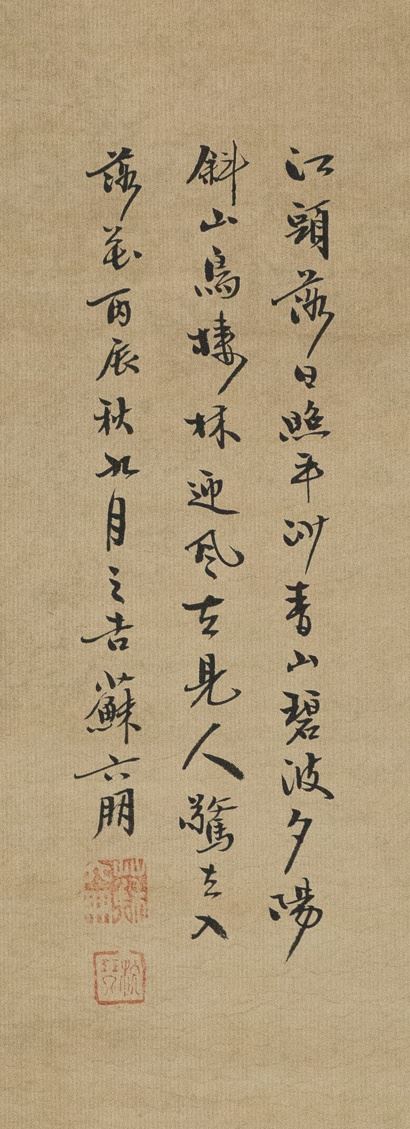 江頭落日照平沙青山碧波夕陽
斜山鳥棲林迎風去見人驚去入
落花丙辰秋九月之吉蘇六朋